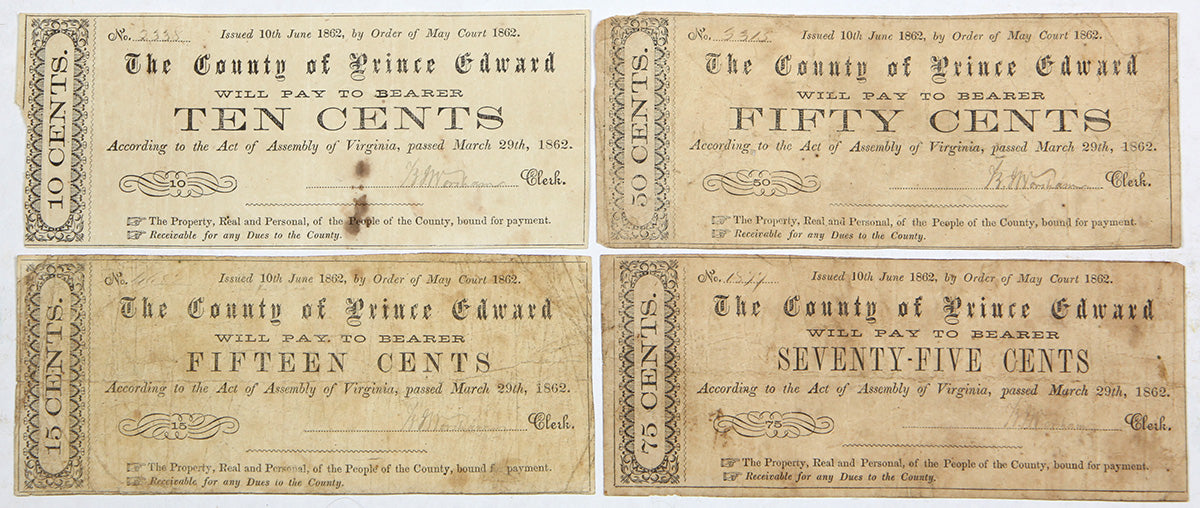 10 CENTS.
No. 2335 Issued 10th June 1862, by Order of May Court 1862.
The County of Prince Edward
WILL PAY TO BEARER
TEN CENTS
According to the Act of Assembly of Virginia, passed March 29th, 1862.
10 Clerk.
The Property, Real and Personal, of the People of the County, bound for payment.
Receivable for any Dues to the County.
50 CENTS.
No. Issued 10th June 1862, by Order of May Court 1862.
The County of Prince Edward
WILL PAY TO BEARER
FIFTY CENTS
According to the Act of Assembly of Virginia, passed March 29th, 1862.
50 Clerk.
The Property, Real and Personal, of the People of the County, bound for payment.
Receivable for any Dues to the County.
15 CENTS.
No. Issued 10th June 1862, by Order of May Court 1862.
The County of Prince Edward
WILL PAY TO BEARER
FIFTEEN CENTS
According to the Act of Assembly of Virginia, passed March 29th, 1862.
15 Clerk.
The Property, Real and Personal, of the People of the County, bound for payment.
Receivable for any Dues to the County.
75 CENTS.
No. Issued 10th June 1862, by Order of May Court 1862.
The County of Prince Edward
WILL PAY TO BEARER
SEVENTY-FIVE CENTS
According to the Act of Assembly of Virginia, passed March 29th, 1862.
75 Clerk.
The Property, Real and Personal, of the People of the County, bound for payment.
Receivable for any Dues to the County.